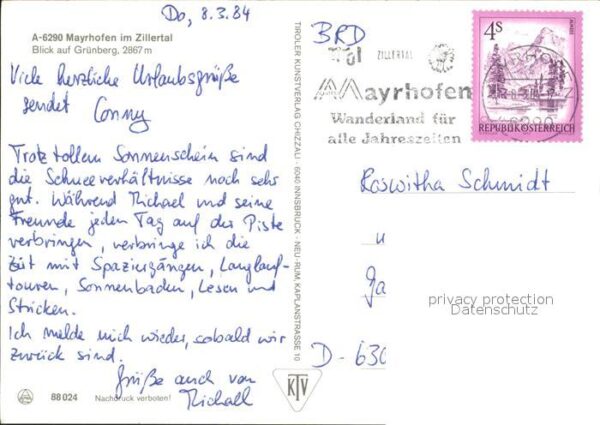 Do, 8.3.84
A-6290 Mayrhofen im Zillertal
Blick auf Grünberg, 2867 m
Viele herzliche Urlaubsgrüße
sendet Conny
Trotz tollem Sonnenschein sind
die Schneeverhältnisse noch sehr
gut. Während Michael und seine
Freunde jeden Tag auf der Piste
verbringen, verbringe ich die
Zeit mit Spaziergängen, Langlauf-
touren, Sonnenbaden, Lesen und
Stricken.
Ich melde mich wieder, sobald wir
zurück sind.
Grüße auch von
Michael
88 024
Nachdruck verboten!
TIROLER KUNSTVERLAG CHIZZALI · 6040 INNSBRUCK - NEU-RUM, KAPLANSTRASSE 10
KTV
BRD
ZILLERTAL
Mayrhofen
Wanderland für
alle Jahreszeiten
4S
ALMSEE
REPUBLIK ÖSTERREICH
Roswitha Schmidt
privacy protection
Datenschutz
D-630